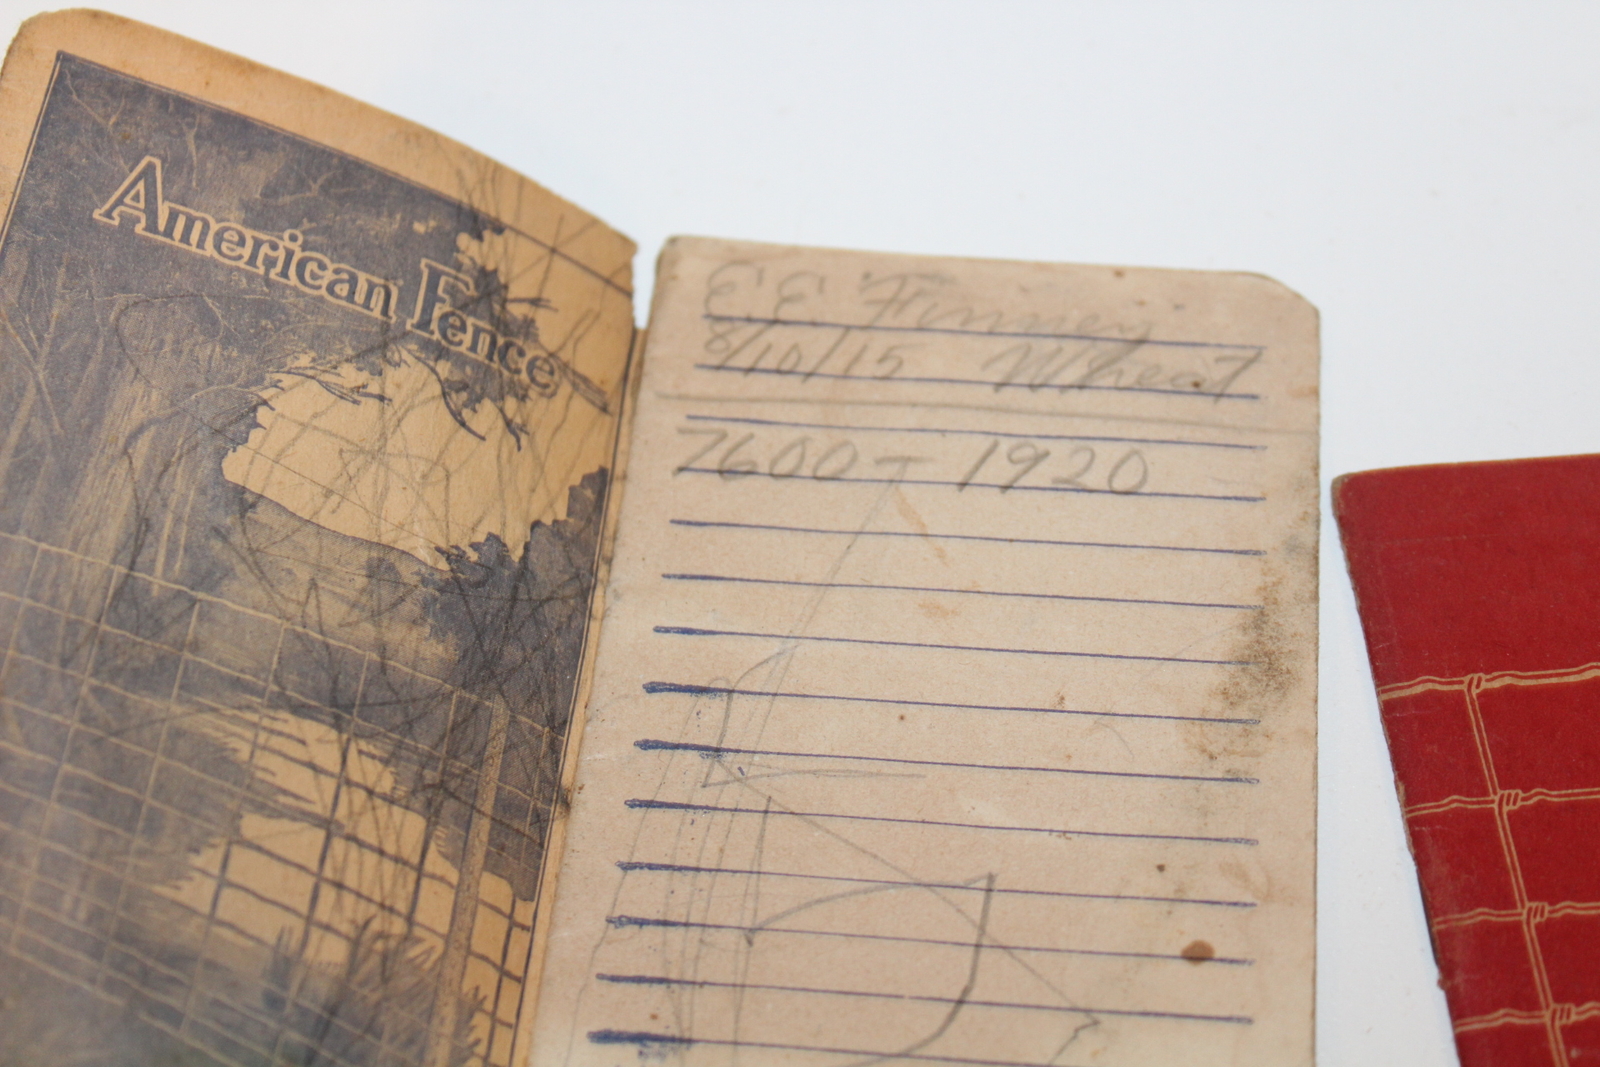 American Fence
E.E. Finney
8/10/15 Wheat
7600 - 1920